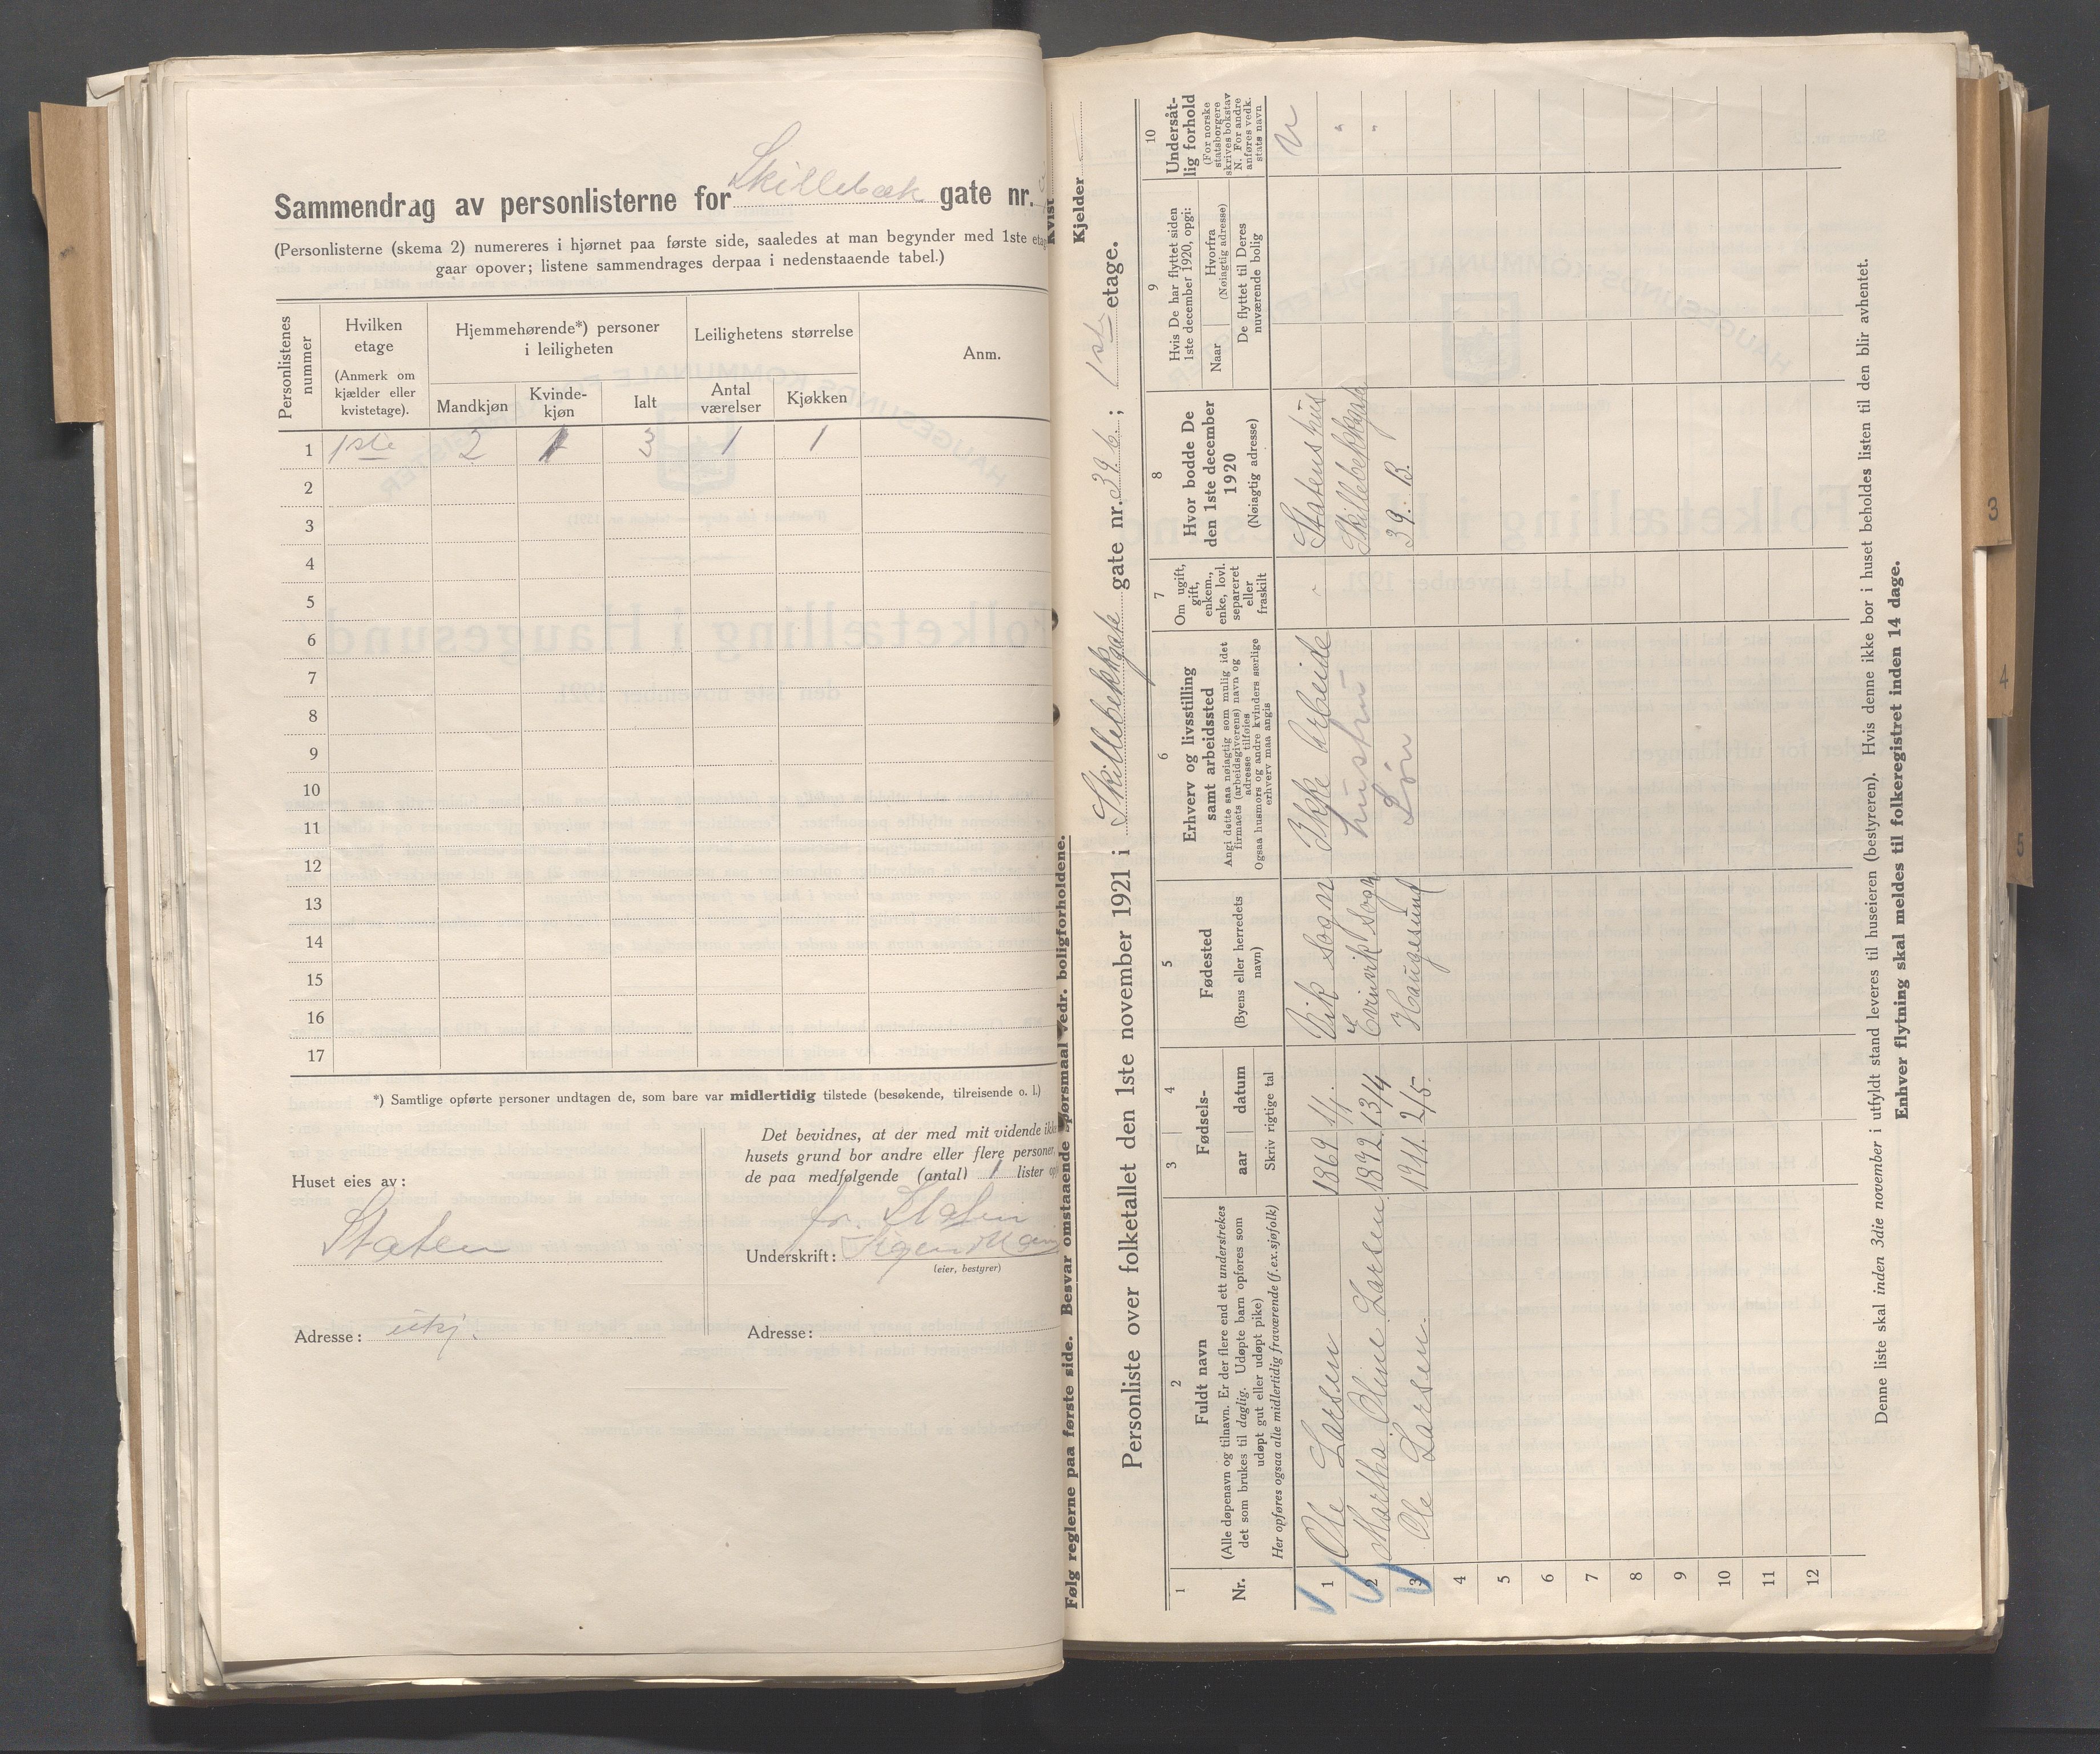 Sammendrag av personlisterne for Skillebæk gate nr.
(Personlisterne (skema 2) numereres i hjørnet paa første side, saaledes at man begynder med 1ste
gaar opover; listene sammendrages derpaa i nedenstaaende tabel.)
Personlistenes nummer
Hvilken etage
(Anmerk om kjælder eller kvistetage).
Hjemmehørende*) personer i leiligheten
Mandkjøn
Kvinde-kjøn
Ialt
Leilighetens størrelse
Antal værelser
Kjøkken
Anm.
1 1ste 2 1 3 1 1
2
3
4
5
6
7
8
9
10
11
12
13
14
15
16
17
*) Samtlige opførte personer undtagen de, som bare var midlertidig tilstede (besøkende, tilreisende o. l.)
Huset eies av:
Staten
Adresse:
Det bevidnes, at der med mit vidende
husets grund bor andre eller flere personer,
de paa medfølgende (antal) 1 lister
for Staten
Underskrift:
(eier, bestyrer)
Adresse:
Følg reglerne paa første side. Besvar omstaaende spørsmaal vedr. boligforholdene.
Kvist
Kjelder
Personliste over folketallet den 1ste november 1921 i Skillebekkgate gate nr. 39 b. ; 1ste etage.
1
Nr.
2
Fuldt navn
(Alle døpenavn og tilnavn. Er der flere end ett understrekes
det som brukes til daglig. Udøpte barn opføres som
udøpt gut eller udøpt pike)
Her opføres ogsaa alle midlertidig fraværende (f.ex.sjøfolk)
3 4
Fødsels-
aar datum
Skriv rigtige tal
5
Fødested
(Byens eller herredets
navn)
6
Erhverv og livsstilling
samt arbeidssted
Angi dette saa nøiagtig som mulig idet
firmaets (arbeidsgiverens) navn og
adresse tilføies
Ogsaa husmors og andre kvinders særlige
erhverv maa angis
7
Om ugift,
gift,
enkem.,
enke, lovl.
separeret
eller
fraskilt
8
Hvor bodde De
den 1ste december
1920
(Nøiagtig adresse)
9
Hvis De har flyttet siden
1ste december 1920, opgi:
Naar
Hvorfra
(Nøiagtig adresse)
De flyttet til Deres
nuværende bolig
10
Undersåt-
lig forhold
(For norske
statsborgere
skrives bokstav
N. For andre
anføres vedk.
stats navn
1 Ole Larsen 1869 1/1. Vik sogn Ikke Arbeide Statenshus N
2 Martha Oline Larsen 1872 13/4 sogn hustru Skillebekkgate "
3 Ole Larsen. 1911. 2/5. Haugesund Søn 39. B. "
4
5
6
7
8
9
10
11
12
Denne liste skal inden 3die november i utfyldt stand leveres til huseieren (bestyreren). Hvis denne ikke bor i huset beholdes listen til den blir avhentet.
Enhver flytning skal meldes til folkeregistret inden 14 dage.
3
4
5